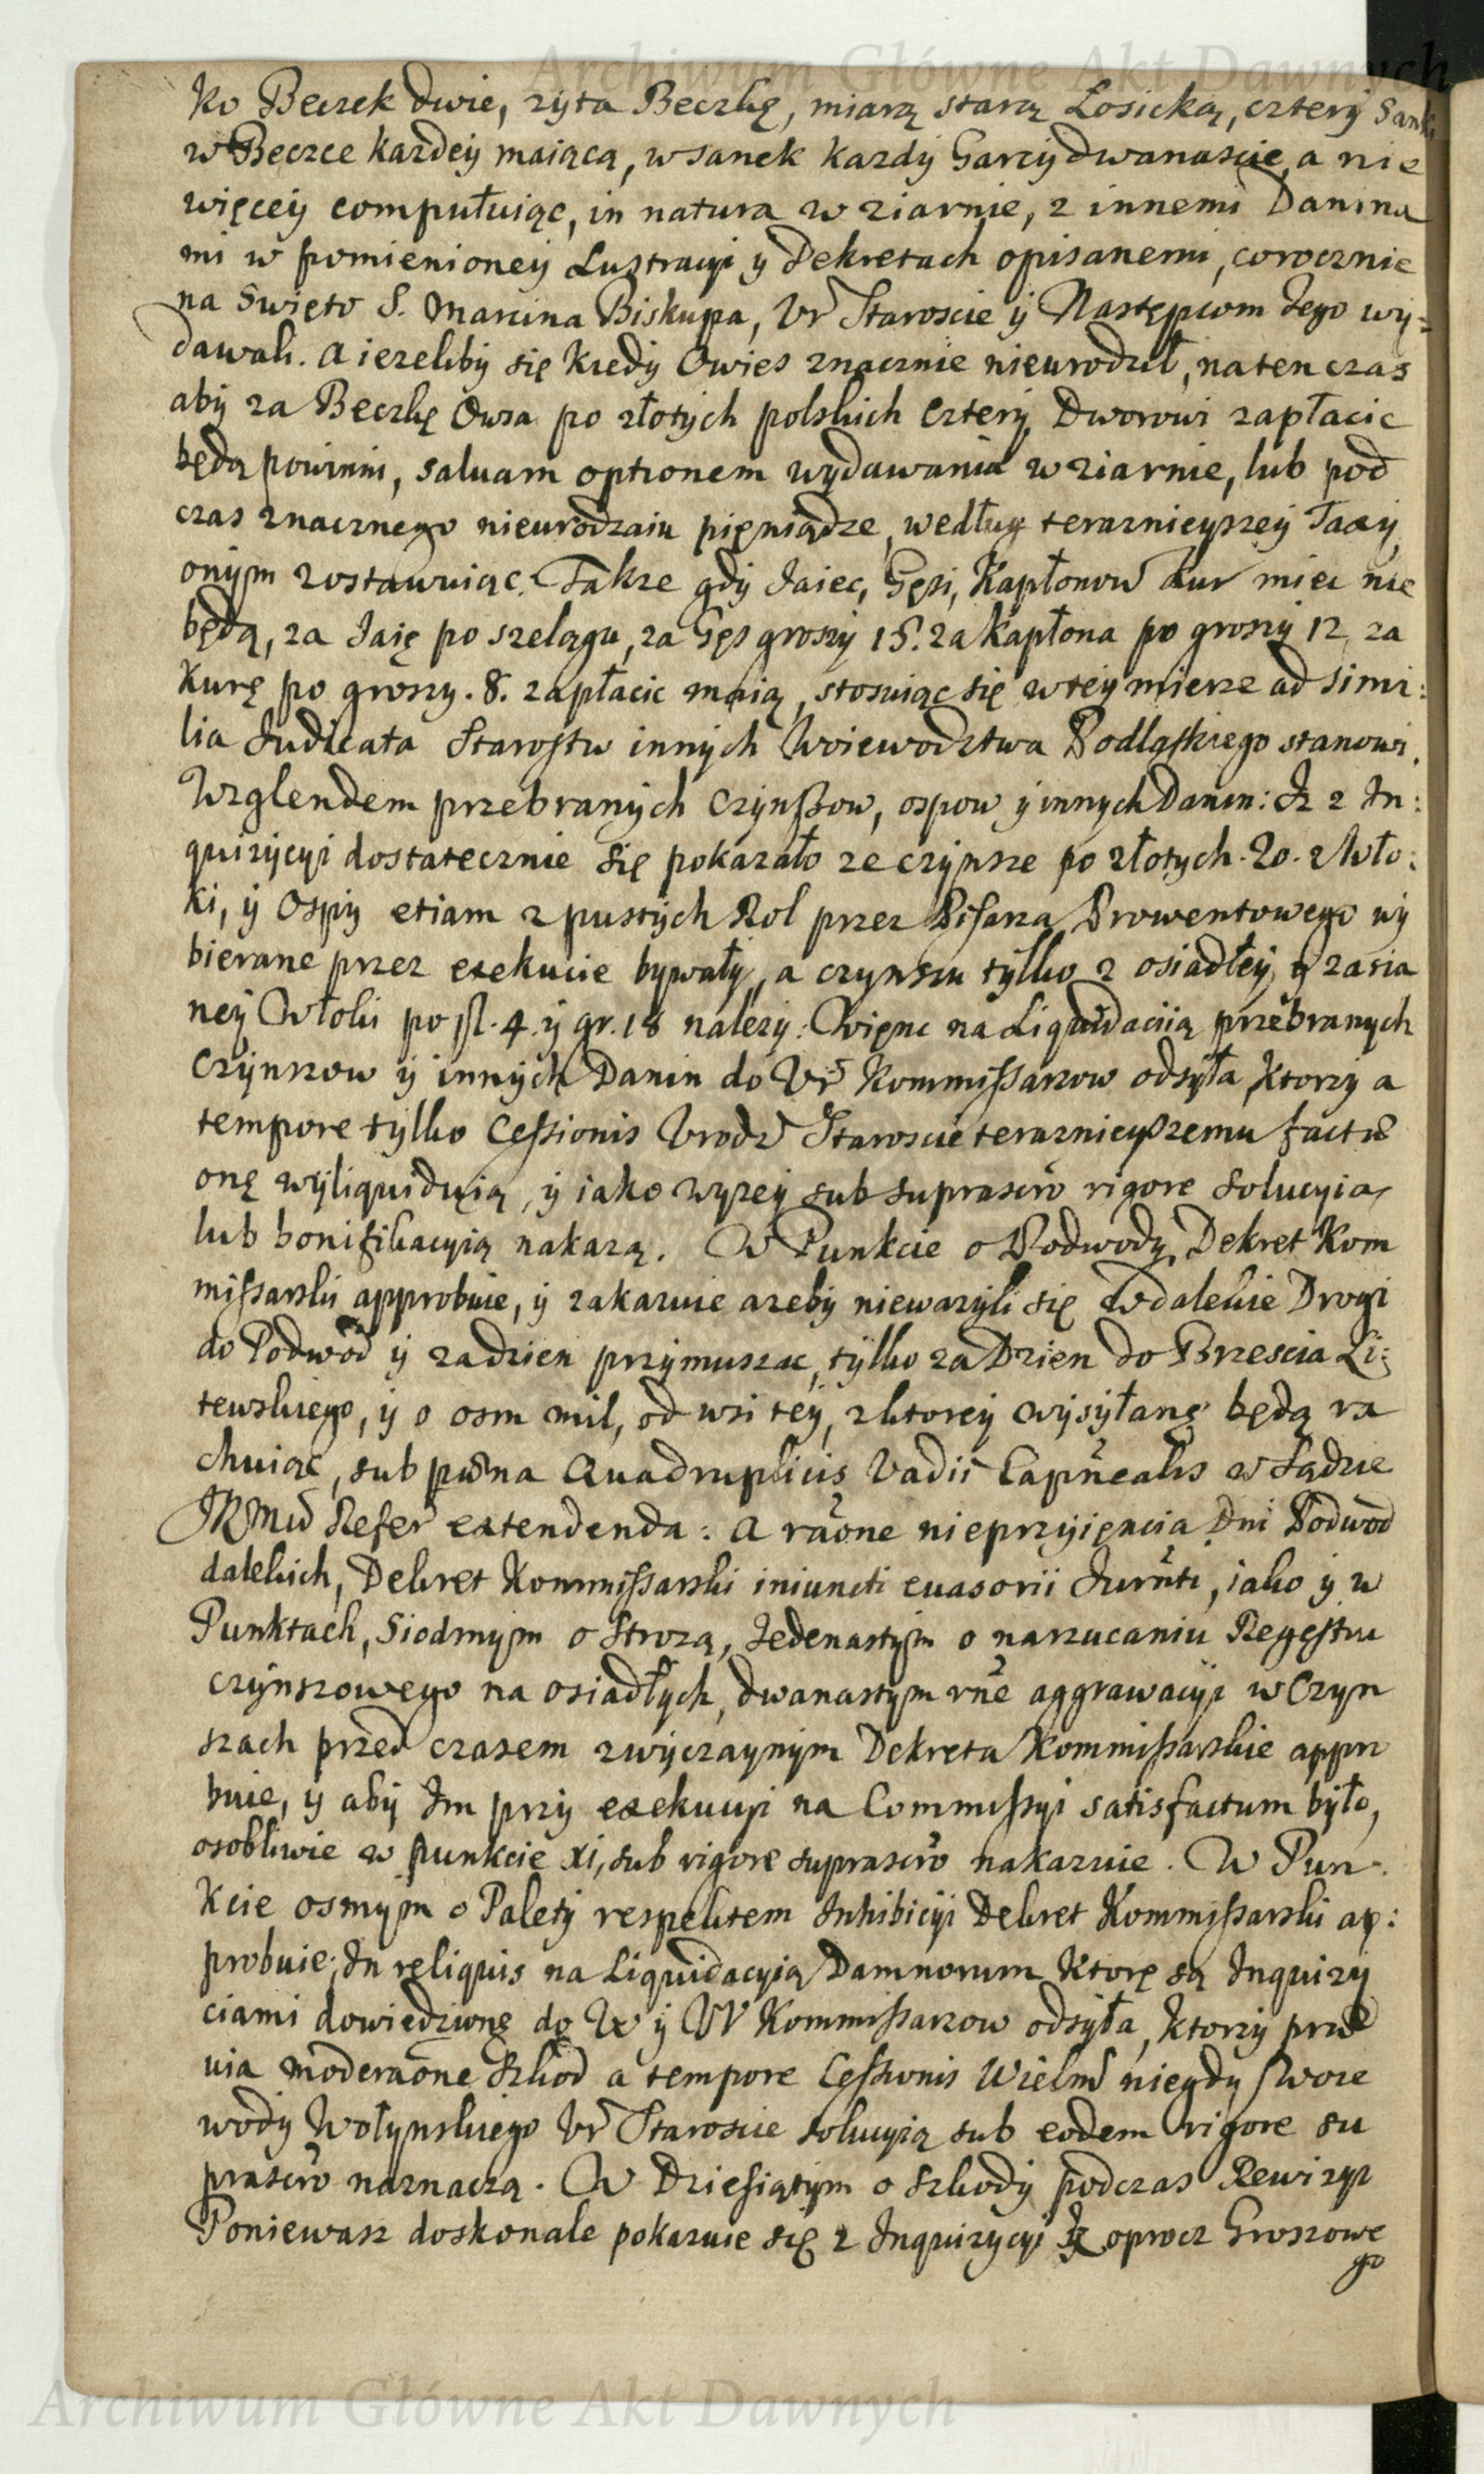 Archiwum Główne Akt Dawnych
ko Beczek dwie, zyta Beczkę, miarą starą Łosicką, cztery Sank
w Beczce kazdey maiącą, w sanek kazdy Garcy dwanascie, a nie
więcey compułuiąc, in natura w ziarnie, z innemi Danina
mi w pomienioney Lustracyi y Dekretach opisanemi, corocznie
na Swięto S. Marcina Biskupa, Ur Staroscie y Następcom Jego wy=
dawali. A iezeliby się kiedy Owies znacznie nieurodził, na ten czas
aby za Beczkę Owsa po złotych polskich cztery Dworowi zapłacic
będą powinni, saluam optionem wydawania w ziarnie, lub pod
czas znacznego nieurodzaiu pięniądze, według teraznieyszey Taxy,
onym zostawuiąc. Takze gdy Jaiec, Gęsi, Kapłonow Kur miec nie
będą, za Jaię po szelągu, za Gęs groszy 15. za Kapłona po groszy 12, za
Kurę po groszy. 8. zapłacic maią, stosuiąc się w tey mierze ad simi:
lia Judicata Starostw innych Woiewodztwa Podlaskiego stanowi.
Wzglendem przebranych Czynszow, ospow y innych Danin: Iz z In:
quizycyi dostatecznie się pokazało ze czynsze po złotych. 20. z Wło:
ki, y Ospy etiam z pustych Rol przez Pisarza Prowentowego wy
bierane przez exekucie bywały, a czynszu tylko z osiadłey y zasia
ney Włoki po fl. 4. y gr. 18 nalezy: Więnc na Liquidaciią przebranych
Czynszow y innych Danin do Ur Kommissarzow odsyła, ktorzy a
tempore tylko Cessionis Urodz Staroscie teraznieyszemu factæ
onę wyliquiduią, y iako wyzey sub suprascro rigore solucyią
lub bonifikacyią nakazą. W Punkcie o Podwody, Dekret Kom
missarski approbuie, y zakazuie azeby niewazyli się w dalekie Drogi
do Podwod y za dzien przymuszac, tylko za Dzien do Brzescia Li:
tewskiego, y o osm mil, od wsi tey, z ktorey wysyłanę będą ra
chuiąc, sub pœna Quadruplicis Vadii Capnealis w Sądzie
JKMci Refer extendenda: A raone nieprzyięncia Dni Podwod
dalekich, Dekret Kommissarski iniuncti euasorii Jurnti, iako y w
Punktach, Siodmym o Strozą, Jedenastym o narzucaniu Regestru
czynszowego na osiadłych, dwanastym rne aggrawacyi w Czyn
szach przed czasem zwyczaynym Dekreta Kommissarskie appro
buie, y aby Im przy exekucyi na Commissyi satisfactum było,
osobliwie w punkcie xi, sub rigore suprascro nakazuie. W Pun=
kcie osmym o Palety respektem Inhibicyi Dekret Kommissarski ap:
probuie; In reliquis na Liquidacyią Damnorum ktorę są Inquizy
ciami dowiedzionę do Ur y W Kommissarzow odsyła, ktorzy præ
uia moderaone szkod a tempore Cessionis Wielmo niegdy Woie
wody Wołynskiego Ur Staroscie solucyią sub eodem rigore su
prascro naznaczą. W Dziesiątym o szkody podczas Rewizyi
Poniewasz doskonale pokazuie się z Inquizycyi Iz oprocz Groszowe
go
Archiwum Główne Akt Dawnych